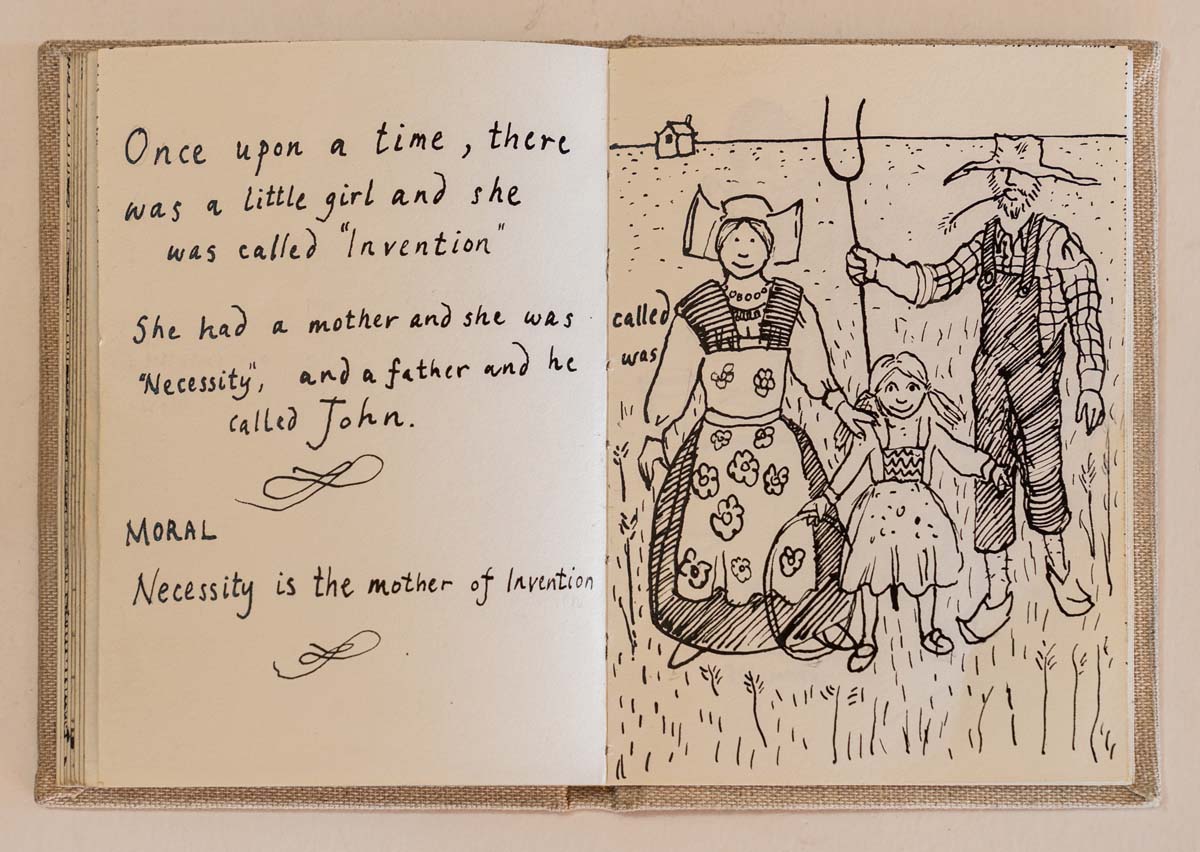 Once upon a time, there
was a little girl and she
was called "Invention"
She had a mother and she was called
"Necessity", and a father and he was
called John.
MORAL
Necessity is the mother of Invention